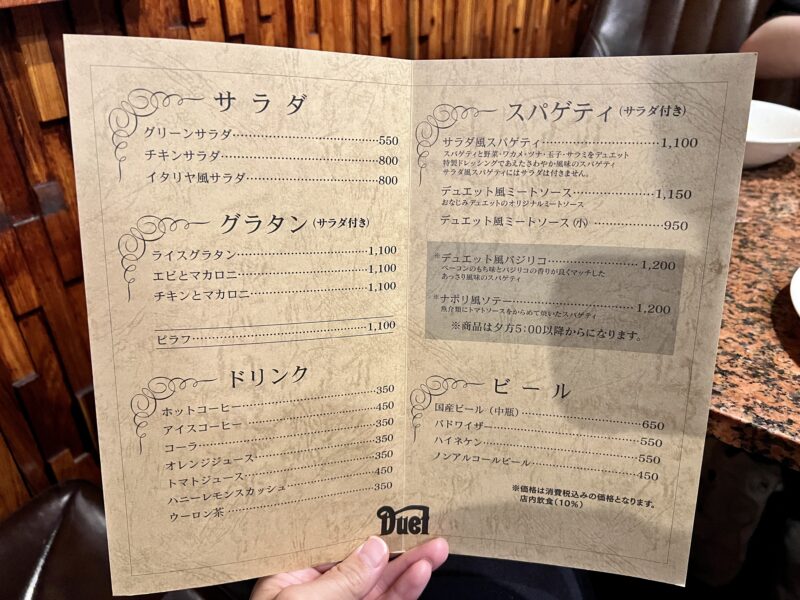 サラダ
グリーンサラダ 550
チキンサラダ 800
イタリヤ風サラダ 800
グラタン(サラダ付き)
ライスグラタン 1,100
エビとマカロニ 1,100
チキンとマカロニ 1,100
ピラフ 1,100
ドリンク
ホットコーヒー 350
アイスコーヒー 450
コーラ 350
オレンジジュース 350
トマトジュース 350
ハニーレモンスカッシュ 450
ウーロン茶 350
スパゲティ(サラダ付き)
サラダ風スパゲティ 1,100
スパゲティと野菜・ワカメ・ツナ・玉子・サラミをデュエット
特製ドレッシングであえたさわやか風味のスパゲティ
サラダ風スパゲティにはサラダは付きません。
デュエット風ミートソース 1,150
おなじみデュエットのオリジナルミートソース
デュエット風ミートソース(小) 950
※デュエット風バジリコ 1,200
ベーコンのもち味とバジリコの香りが良くマッチした
あっさり風味のスパゲティ
※ナポリ風ソテー 1,200
魚介類にトマトソースをからめて焼いたスパゲティ
※商品は夕方5:00以降からになります。
ビール
国産ビール(中瓶) 650
バドワイザー 550
ハイネケン 550
ノンアルコールビール 450
※価格は消費税込みの価格となります。
店内飲食(10%)
Duet